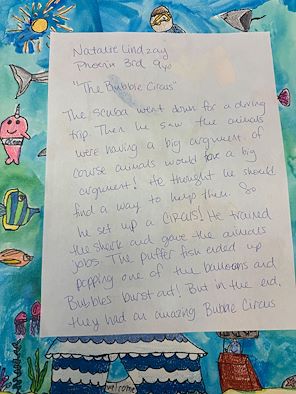 Natalie Lindzay
Phoenix 3rd 9yo
"The Bubble Circus"
The scuba went down for a diving
trip. Then he saw the animals
were having a big argument. of
course animals would have a big
argument! He thought he should
find a way to help them. So
he set up a CIRCUS! He trained
the shark and gave the animals
jobs. The puffer fish ended up
popping one of the balloons and
Bubbles burst out! But in the end,
they had an amazing Bubble Circus
welcome